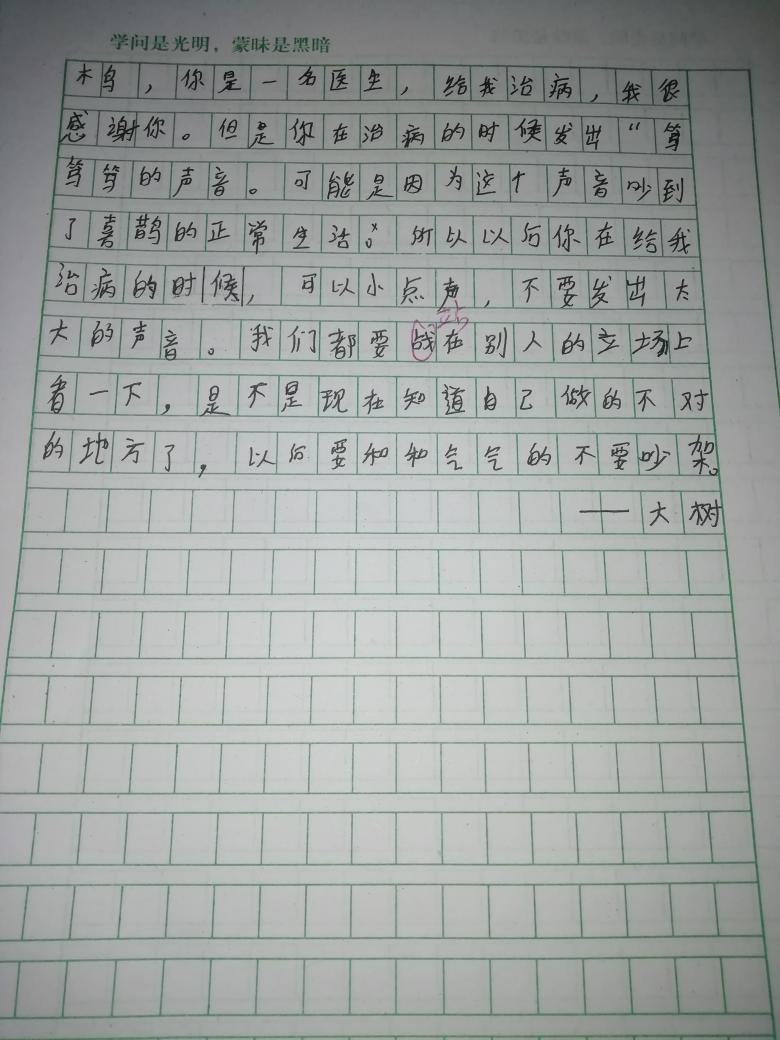 学问是光明，蒙昧是黑暗
木鸟，你是一名医生，给我治病，我很
感谢你。但是你在治病的时候发出“笃
笃笃的声音。可能是因为这个声音吵到
了喜鹊的正常生活。所以以后你在给我
治病的时候，可以小点声，不要发出大
站
大的声音。我们都要战在别人的立场上
看一下，是不是现在知道自己做的不对
的地方了，以后要和和气气的不要吵架。
——大树